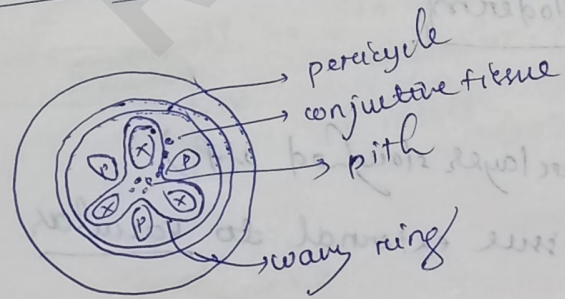 pericycle
conjuctive tissue
pith
wavy ring
X
P
P
X
X
P